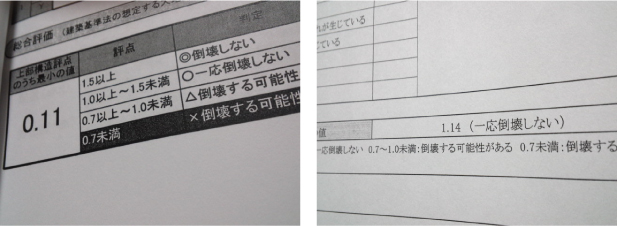 総合評価 (建築基準法の想定する大
上部構造評点
のうち最小の値
評点
判定
0.11
1.5以上
◎倒壊しない
1.0以上～1.5未満
○一応倒壊しない
0.7以上～1.0未満
△倒壊する可能性
0.7未満
×倒壊する可能性
が生じている
ている
値
1.14 (一応倒壊しない)
一応倒壊しない 0.7～1.0未満:倒壊する可能性がある 0.7未満:倒壊する